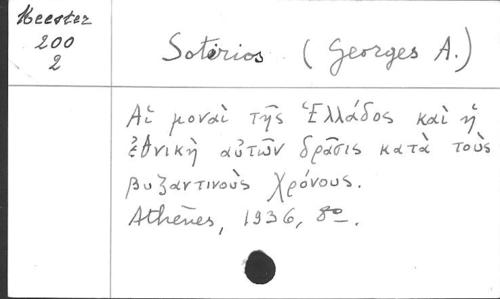 Meester
200
2
Sotirios (Georges A.)
Αἱ μοναὶ τῆς Ἑλλάδος καὶ ἡ
ἐθνικὴ αὐτῶν δρᾶσις κατὰ τοὺς
βυζαντινοὺς χρόνους.
Athènes, 1936, 8º.